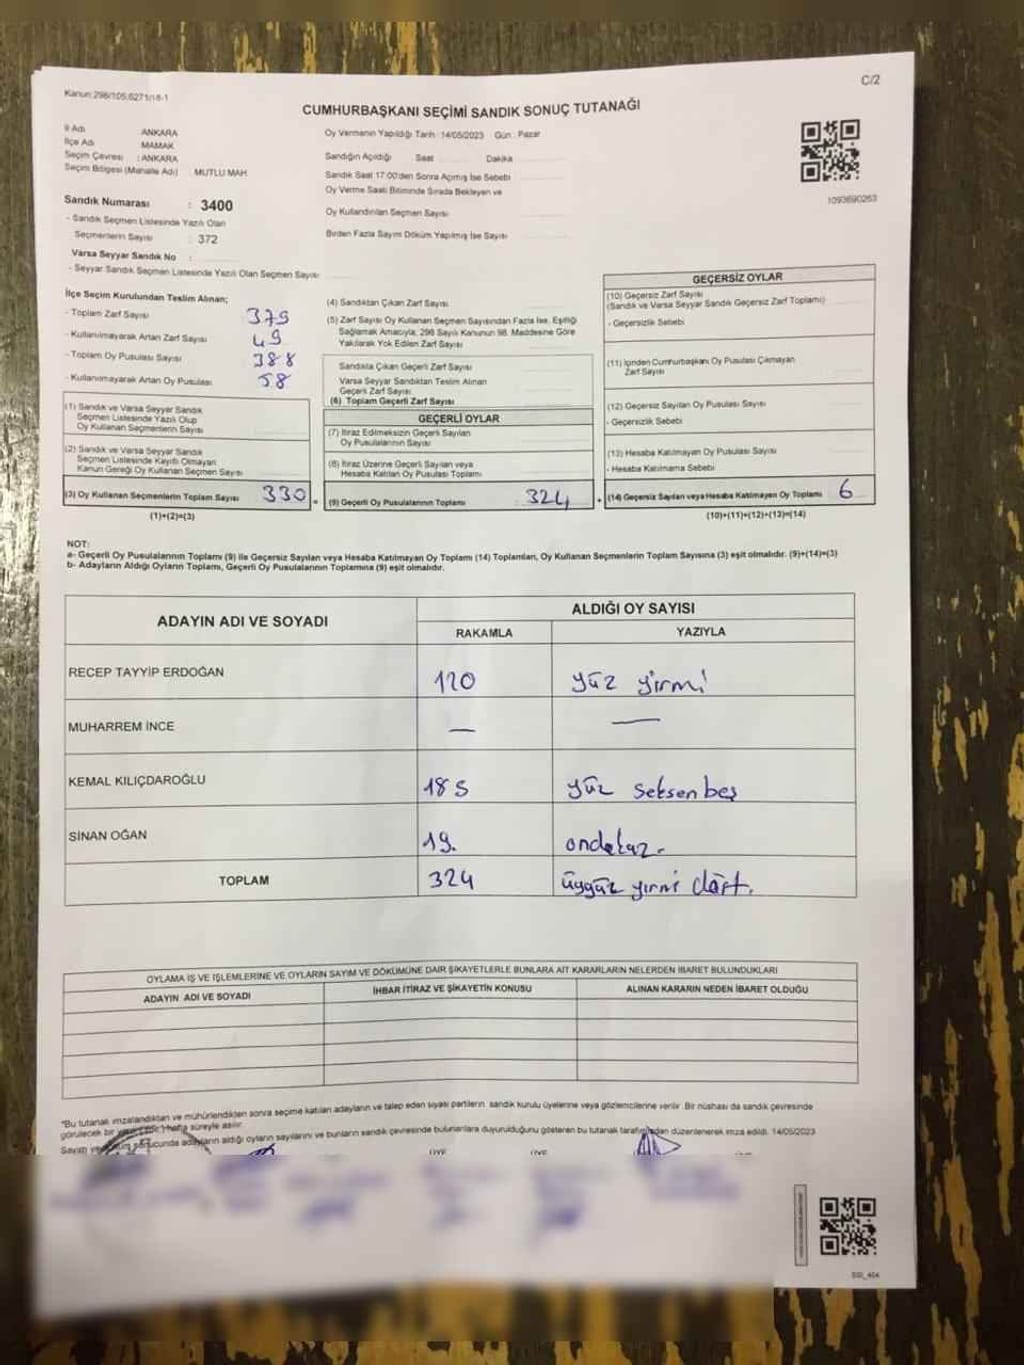 C/2
Kanun:298/105;6271/18-1
CUMHURBAŞKANI SEÇİMİ SANDIK SONUÇ TUTANAĞI
İl Adı ANKARA
İlçe Adı MAMAK
Seçim Çevresi : ANKARA
Seçim Bölgesi (Mahalle Adı) MUTLU MAH.
Oy Vermenin Yapıldığı Tarih : 14/05/2023 Gün : Pazar
Sandığın Açıldığı Saat Dakika
Sandık Saat 17:00'den Sonra Açılmış İse Sebebi
Oy Verme Saati Bitiminde Sırada Bekleyen ve
Oy Kullandırılan Seçmen Sayısı
Birden Fazla Sayım Döküm Yapılmış İse Sayısı
1093690263
Sandık Numarası : 3400
- Sandık Seçmen Listesinde Yazılı Olan
Seçmenlerin Sayısı : 372
Varsa Seyyar Sandık No :
- Seyyar Sandık Seçmen Listesinde Yazılı Olan Seçmen Sayısı
İlçe Seçim Kurulundan Teslim Alınan;
- Toplam Zarf Sayısı 379
- Kullanılmayarak Artan Zarf Sayısı 49
- Toplam Oy Pusulası Sayısı 388
- Kullanılmayarak Artan Oy Pusulası 58
(1) Sandık ve Varsa Seyyar Sandık
Seçmen Listesinde Yazılı Olup
Oy Kullanan Seçmenlerin Sayısı
(2) Sandık ve Varsa Seyyar Sandık
Seçmen Listesinde Kayıtlı Olmayan
Kanun Gereği Oy Kullanan Seçmen Sayısı
(3) Oy Kullanan Seçmenlerin Toplam Sayısı 330 =
(1)+(2)=(3)
(4) Sandıktan Çıkan Zarf Sayısı
(5) Zarf Sayısı Oy Kullanan Seçmen Sayısından Fazla İse, Eşitliği
Sağlamak Amacıyla, 298 Sayılı Kanunun 98. Maddesine Göre
Yakılarak Yok Edilen Zarf Sayısı
Sandıkta Çıkan Geçerli Zarf Sayısı
Varsa Seyyar Sandıktan Teslim Alınan
Geçerli Zarf Sayısı
(6) Toplam Geçerli Zarf Sayısı
GEÇERLİ OYLAR
(7) İtiraz Edilmeksizin Geçerli Sayılan
Oy Pusulalarının Sayısı
(8) İtiraz Üzerine Geçerli Sayılan veya
Hesaba Katılan Oy Pusulası Toplamı
(9) Geçerli Oy Pusulalarının Toplamı 324 +
GEÇERSİZ OYLAR
(10) Geçersiz Zarf Sayısı
(Sandık ve Varsa Seyyar Sandık Geçersiz Zarf Toplamı)
- Geçersizlik Sebebi
(11) İçinden Cumhurbaşkanı Oy Pusulası Çıkmayan
Zarf Sayısı
(12) Geçersiz Sayılan Oy Pusulası Sayısı
- Geçersizlik Sebebi
(13) Hesaba Katılmayan Oy Pusulası Sayısı
- Hesaba Katılmama Sebebi
(14) Geçersiz Sayılan veya Hesaba Katılmayan Oy Toplamı 6
(10)+(11)+(12)+(13)=(14)
NOT:
a- Geçerli Oy Pusulalarının Toplamı (9) ile Geçersiz Sayılan veya Hesaba Katılmayan Oy Toplamı (14) Toplamları, Oy Kullanan Seçmenlerin Toplam Sayısına (3) eşit olmalıdır. (9)+(14)=(3)
b- Adayların Aldığı Oyların Toplamı, Geçerli Oy Pusulalarının Toplamına (9) eşit olmalıdır.
ADAYIN ADI VE SOYADI ALDIĞI OY SAYISI
RAKAMLA YAZIYLA
RECEP TAYYİP ERDOĞAN 120 yüz yirmi
MUHARREM İNCE — —
KEMAL KILIÇDAROĞLU 185 yüz seksen beş
SİNAN OĞAN 19. ondokuz.
TOPLAM 324 üçyüz yirmi dört.
OYLAMA İŞ VE İŞLEMLERİNE VE OYLARIN SAYIM VE DÖKÜMÜNE DAİR ŞİKAYETLERLE BUNLARA AİT KARARLARIN NELERDEN İBARET BULUNDUKLARI
ADAYIN ADI VE SOYADI İHBAR İTİRAZ VE ŞİKAYETİN KONUSU ALINAN KARARIN NEDEN İBARET OLDUĞU
*Bu tutanak imzalandıktan ve mühürlendikten sonra seçime katılan adayların ve talep eden siyasi partilerin sandık kurulu üyelerine veya gözlemcilerine verilir. Bir nüshası da sandık çevresinde
görülecek bir yere hafta süreyle asılır.
Sayım ve sonucunda adayların aldığı oyların sayılarını ve bunların sandık çevresinde bulunanlara duyurulduğunu gösteren bu tutanak tarafımızdan düzenlenerek imza edildi. 14/05/2023
ÜYE ÜYE